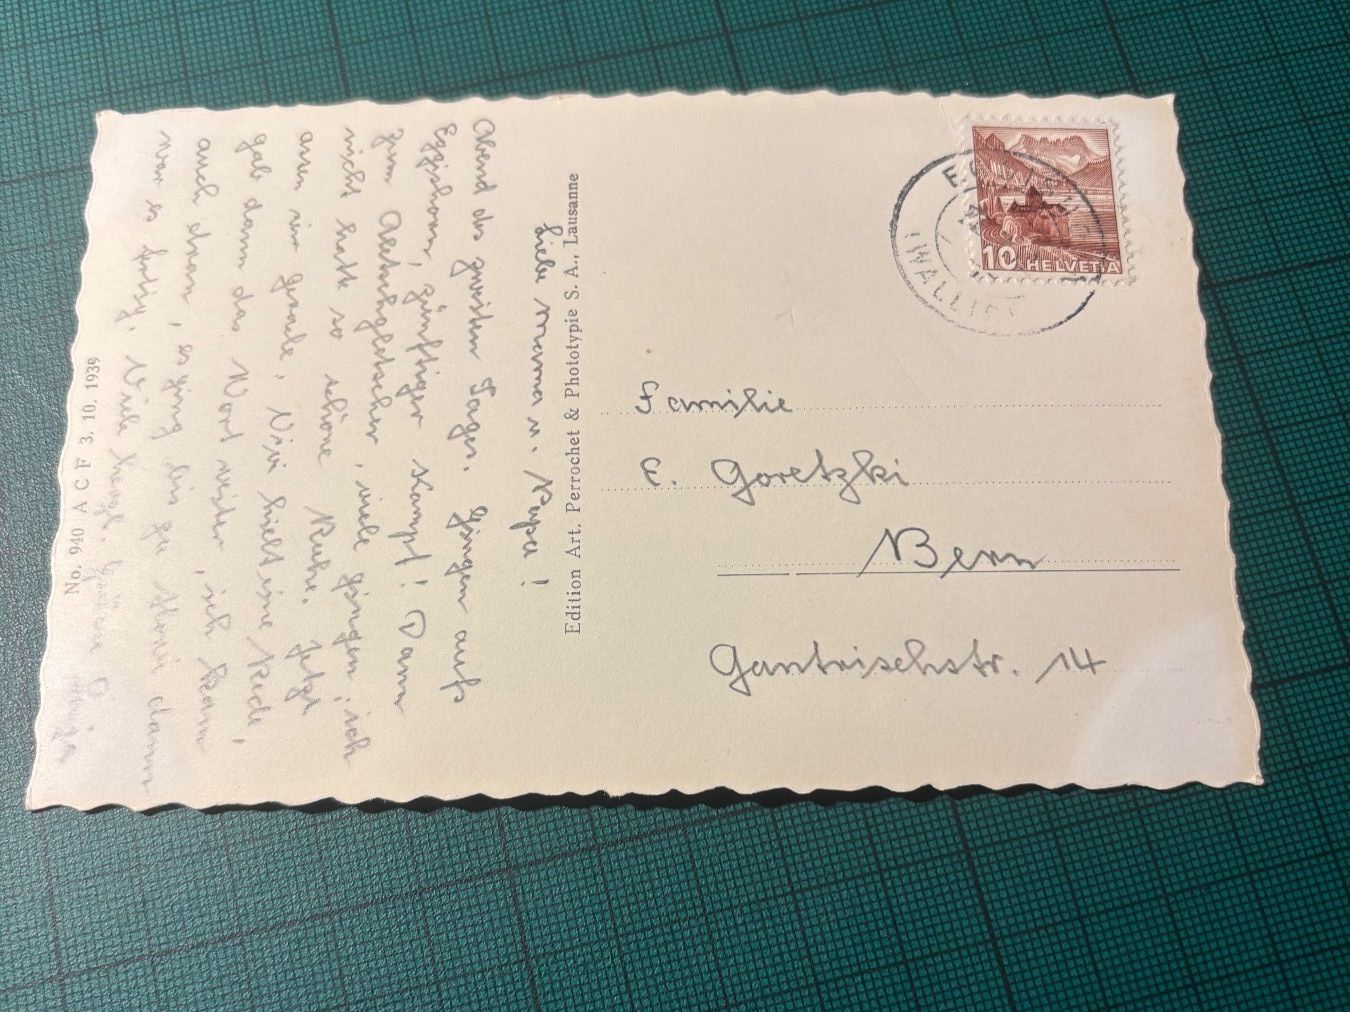 Liebe Mamma u. Papa!
Abend des zweiten Tages. Gingen aufs
Eggishorn, zünftiger Kampf! Dann
zum Aletschgletscher, viele gingen, ich
nicht hatte so schöne Ruhe. Jetzt
essen wir gerade, Vivi hielt eine Rede,
gab dann das Wort weiter, ich kam
auch dran, es ging bis zu dann
war es fertig. Viele herzl.
No. 940 A C F 3. 10. 1939
Edition Art. Perrochet & Phototypie S. A., Lausanne
10 HELVETIA
(WALLIS)
Familie
E. Goretzki
Bern
Gantrischstr. 14